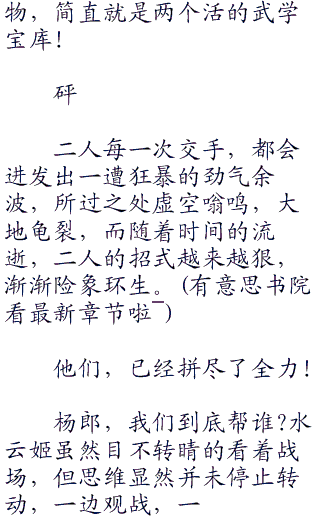 物，简直就是两个活的武学
宝库！
砰
二人每一次交手，都会
迸发出一遭狂暴的劲气余
波，所过之处虚空嗡鸣，大
地龟裂，而随着时间的流
逝，二人的招式越来越狠，
渐渐险象环生。（有意思书院
看最新章节啦¯）
他们，已经拼尽了全力！
杨郎，我们到底帮谁？水
云姬虽然目不转睛的看着战
场，但思维显然并未停止转
动，一边观战，一